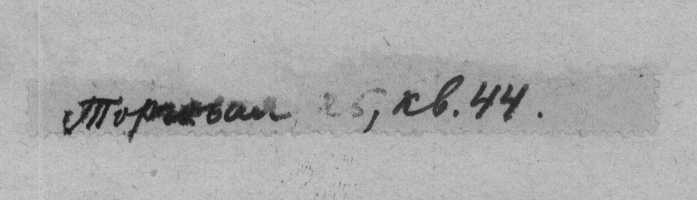 Торговая 25, кв. 44.